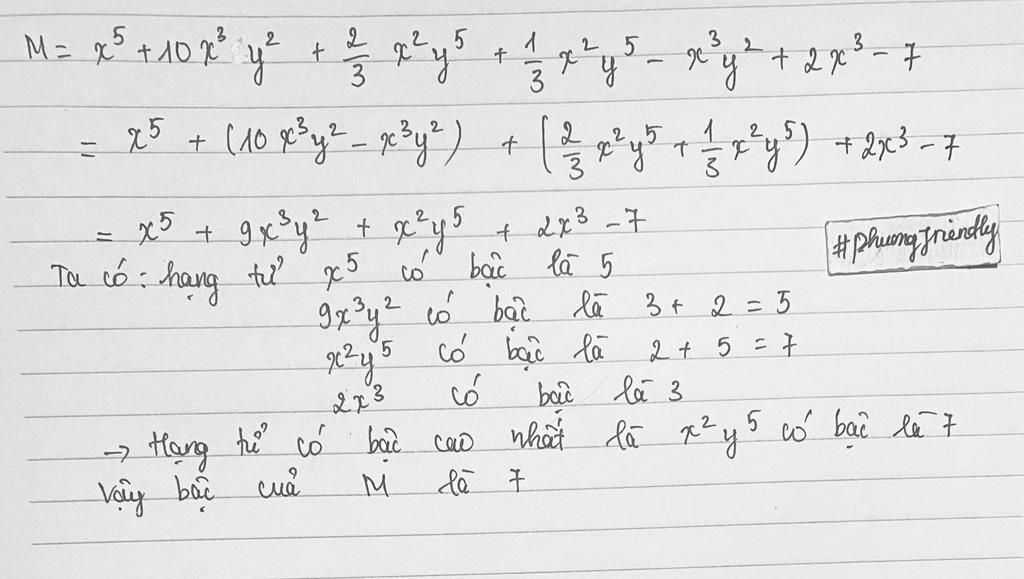 M = x⁵ + 10x³y² + 2/3 x²y⁵ + 1/3 x²y⁵ - x³y² + 2x³ - 7
= x⁵ + (10x³y² - x³y²) + (2/3 x²y⁵ + 1/3 x²y⁵) + 2x³ - 7
= x⁵ + 9x³y² + x²y⁵ + 2x³ - 7
#phuongfriendly
Ta có: hạng tử x⁵ có bậc là 5
9x³y² có bậc là 3 + 2 = 5
x²y⁵ có bậc là 2 + 5 = 7
2x³ có bậc là 3
→ Hạng tử có bậc cao nhất là x²y⁵ có bậc là 7
Vậy bậc của M là 7